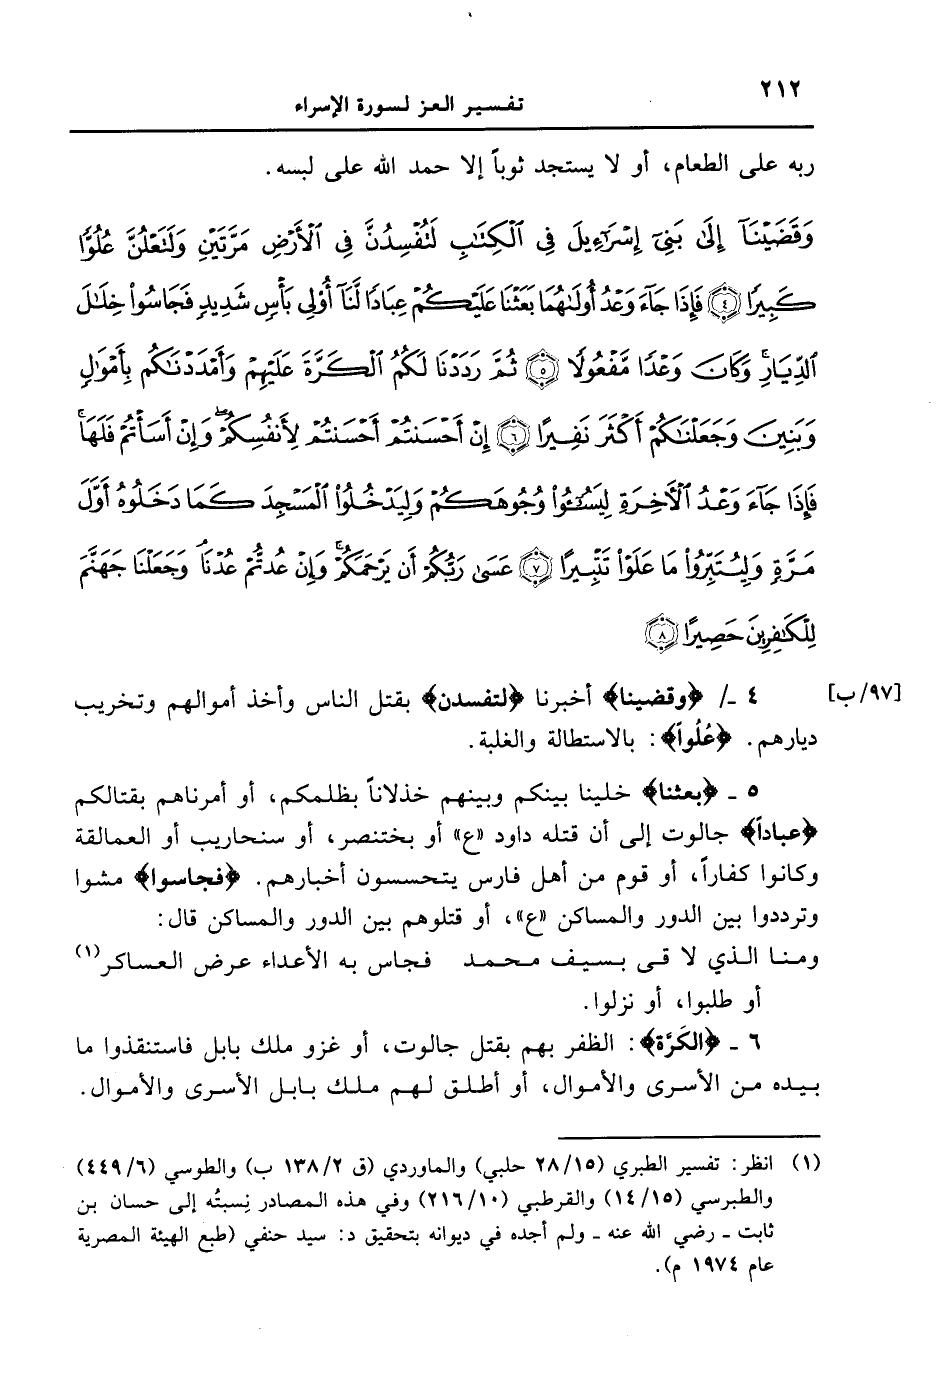 ٢١٢
تفسير العز لسورة الإسراء
ربه على الطعام، أو لا يستجد ثوباً إلا حمد الله على لبسه.
وَقَضَيْنَآ إِلَىٰ بَنِىٓ إِسْرَٰٓءِيلَ فِى ٱلْكِتَٰبِ لَتُفْسِدُنَّ فِى ٱلْأَرْضِ مَرَّتَيْنِ وَلَتَعْلُنَّ عُلُوًّا
كَبِيرًا ٤ فَإِذَا جَآءَ وَعْدُ أُولَىٰهُمَا بَعَثْنَا عَلَيْكُمْ عِبَادًا لَّنَآ أُو۟لِى بَأْسٍ شَدِيدٍ فَجَاسُوا۟ خِلَٰلَ
ٱلدِّيَارِ ۚ وَكَانَ وَعْدًا مَّفْعُولًا ٥ ثُمَّ رَدَدْنَا لَكُمُ ٱلْكَرَّةَ عَلَيْهِمْ وَأَمْدَدْنَٰكُم بِأَمْوَٰلٍ
وَبَنِينَ وَجَعَلْنَٰكُمْ أَكْثَرَ نَفِيرًا ٦ إِنْ أَحْسَنتُمْ أَحْسَنتُمْ لِأَنفُسِكُمْ ۖ وَإِنْ أَسَأْتُمْ فَلَهَا ۚ
فَإِذَا جَآءَ وَعْدُ ٱلْءَاخِرَةِ لِيَسُۥٓـُٔوا۟ وُجُوهَكُمْ وَلِيَدْخُلُوا۟ ٱلْمَسْجِدَ كَمَا دَخَلُوهُ أَوَّلَ
مَرَّةٍ وَلِيُتَبِّرُوا۟ مَا عَلَوْا۟ تَتْبِيرًا ٧ عَسَىٰ رَبُّكُمْ أَن يَرْحَمَكُمْ ۚ وَإِنْ عُدتُّمْ عُدْنَا ۘ وَجَعَلْنَا جَهَنَّمَ
لِلْكَٰفِرِينَ حَصِيرًا ٨
[٩٧/ب] ٤ ـ/ ﴿وقضينا﴾ أخبرنا ﴿لتفسدن﴾ بقتل الناس وأخذ أموالهم وتخريب
ديارهم. ﴿عُلُواً﴾: بالاستطالة والغلبة.
٥ ـ ﴿بعثنا﴾ خلينا بينكم وبينهم خذلاناً بظلمكم، أو أمرناهم بقتالكم
﴿عباداً﴾ جالوت إلى أن قتله داود «ع» أو بختنصر، أو سنحاريب أو العمالقة
وكانوا كفاراً، أو قوم من أهل فارس يتحسسون أخبارهم. ﴿فجاسوا﴾ مشوا
وترددوا بين الدور والمساكن «ع»، أو قتلوهم بين الدور والمساكن قال:
ومنا الذي لا قى بسيف محمد فجاس به الأعداء عرض العساكر(١)
أو طلبوا، أو نزلوا.
٦ ـ ﴿الكَرَّة﴾: الظفر بهم بقتل جالوت، أو غزو ملك بابل فاستنقذوا ما
بيده من الأسرى والأموال، أو أطلق لهم ملك بابل الأسرى والأموال.
(١) انظر: تفسير الطبري (٢٨/١٥ حلبي) والماوردي (ق ١٣٨/٢ ب) والطوسي (٤٤٩/٦)
والطبرسي (١٤/١٥) والقرطبي (٢١٦/١٠) وفي هذه المصادر نِسبتُه إلى حسان بن
ثابت ـ رضي الله عنه ـ ولم أجده في ديوانه بتحقيق د: سيد حنفي (طبع الهيئة المصرية
عام ١٩٧٤ م).